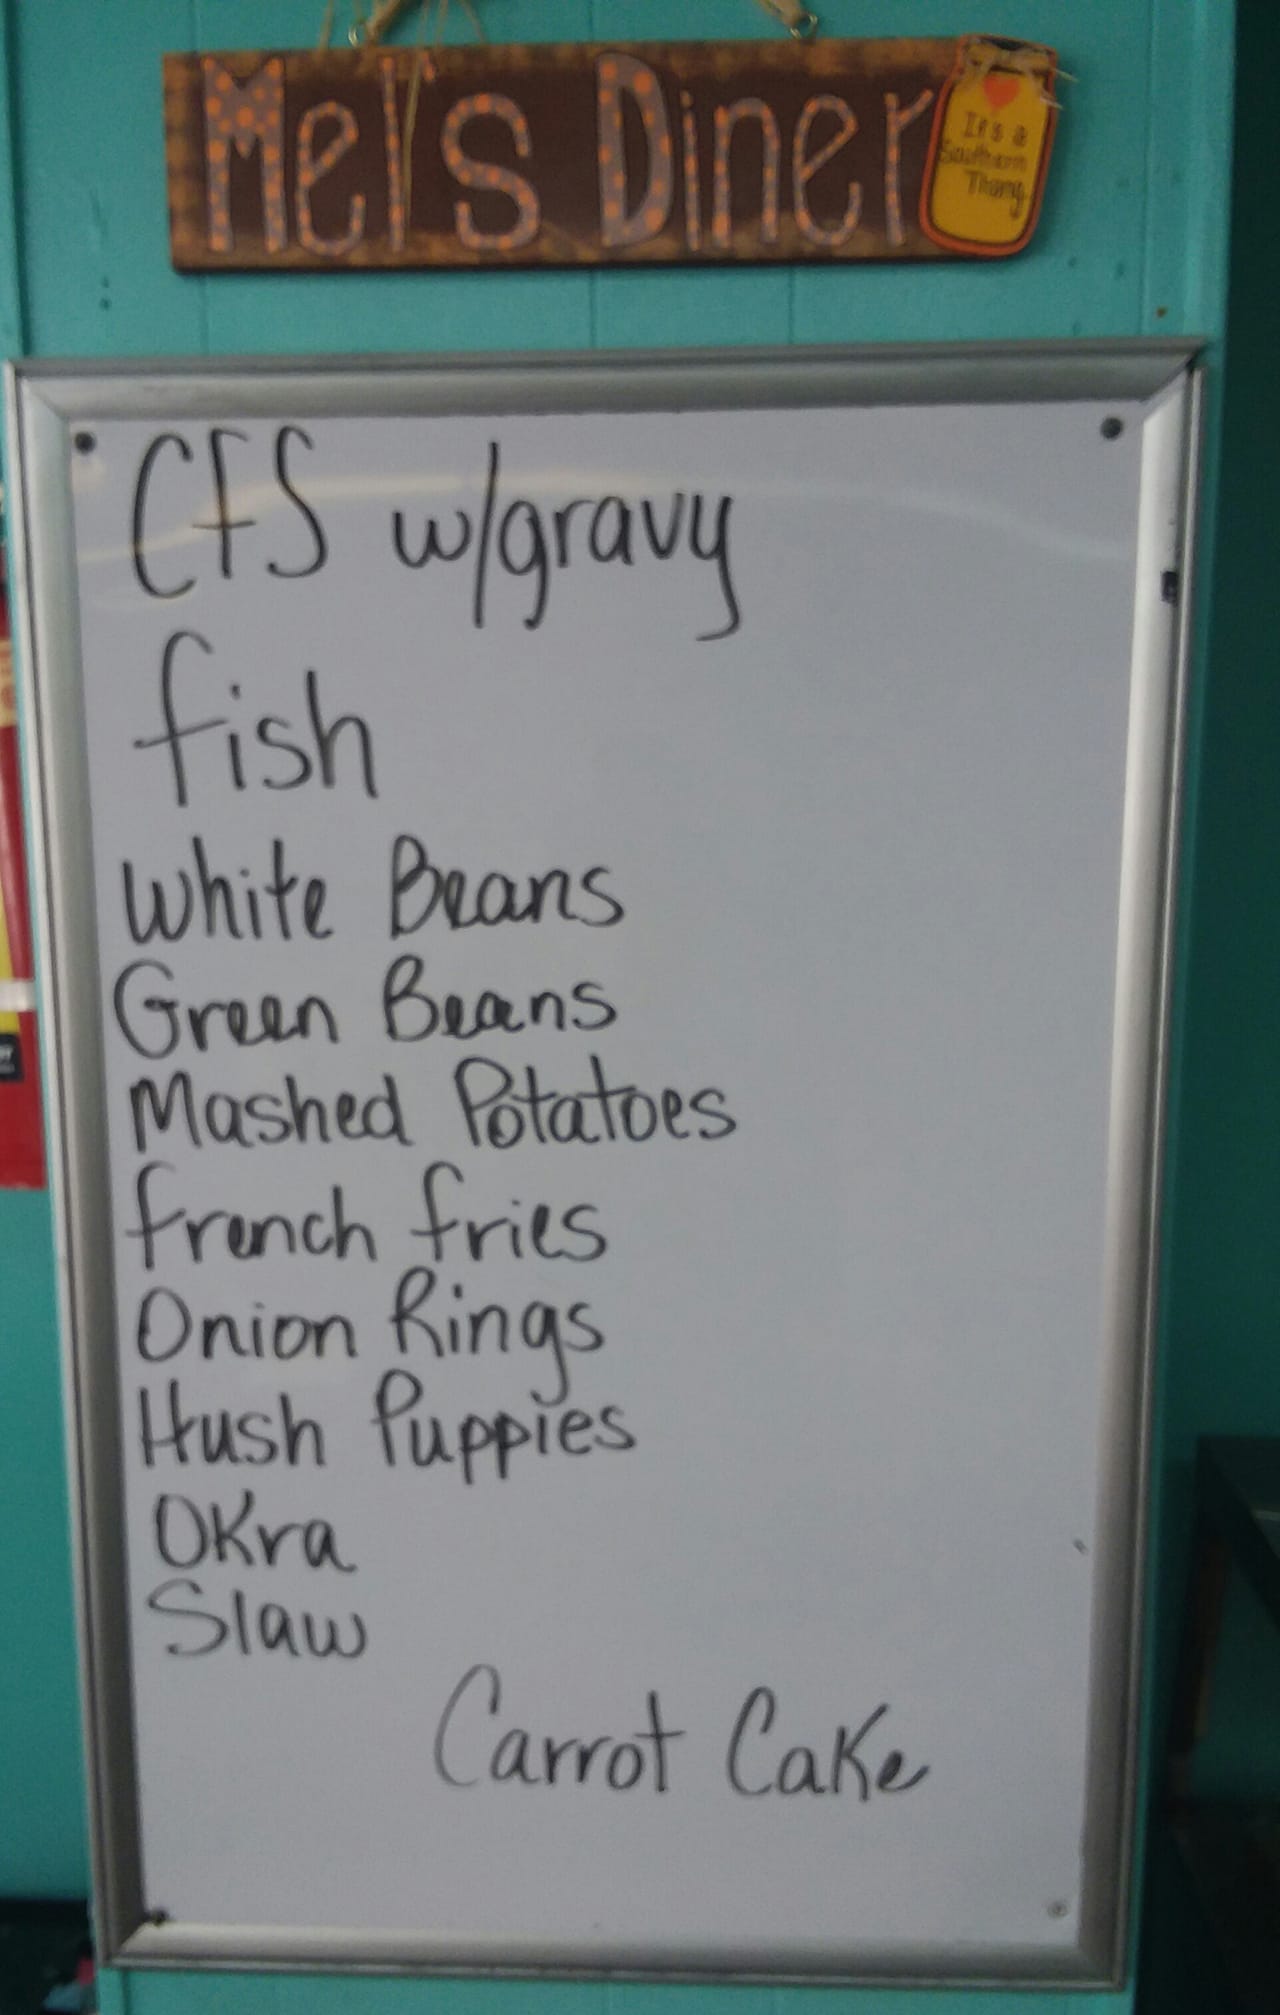 Mel's Diner
It's a
Southern
Thang
CFS w/gravy
fish
White Beans
Green Beans
Mashed Potatoes
french fries
Onion Rings
Hush Puppies
Okra
Slaw
Carrot Cake